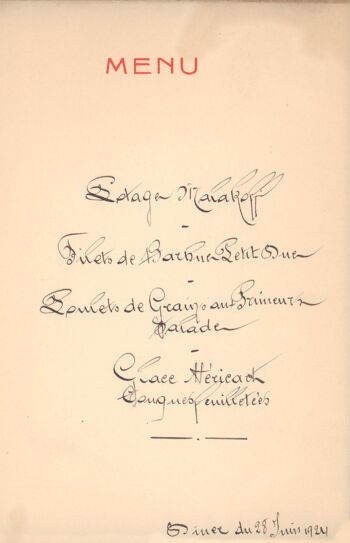 MENU
Potage Malakoff
-
Filets de Barbue Petit Duc
-
Poulets de Grains aux Primeurs
Salade
-
Glace Héricart
Conques feuilletées
Diner du 28 Juin 1924